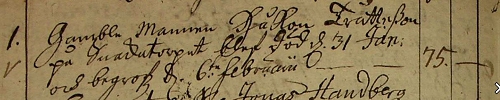 1. Gamble Mannen Håkon Trättesson
på Snadatorpet blef död d. 31 Jan:
och begrofs d. 6te februarii 75.
Jonas Handberg